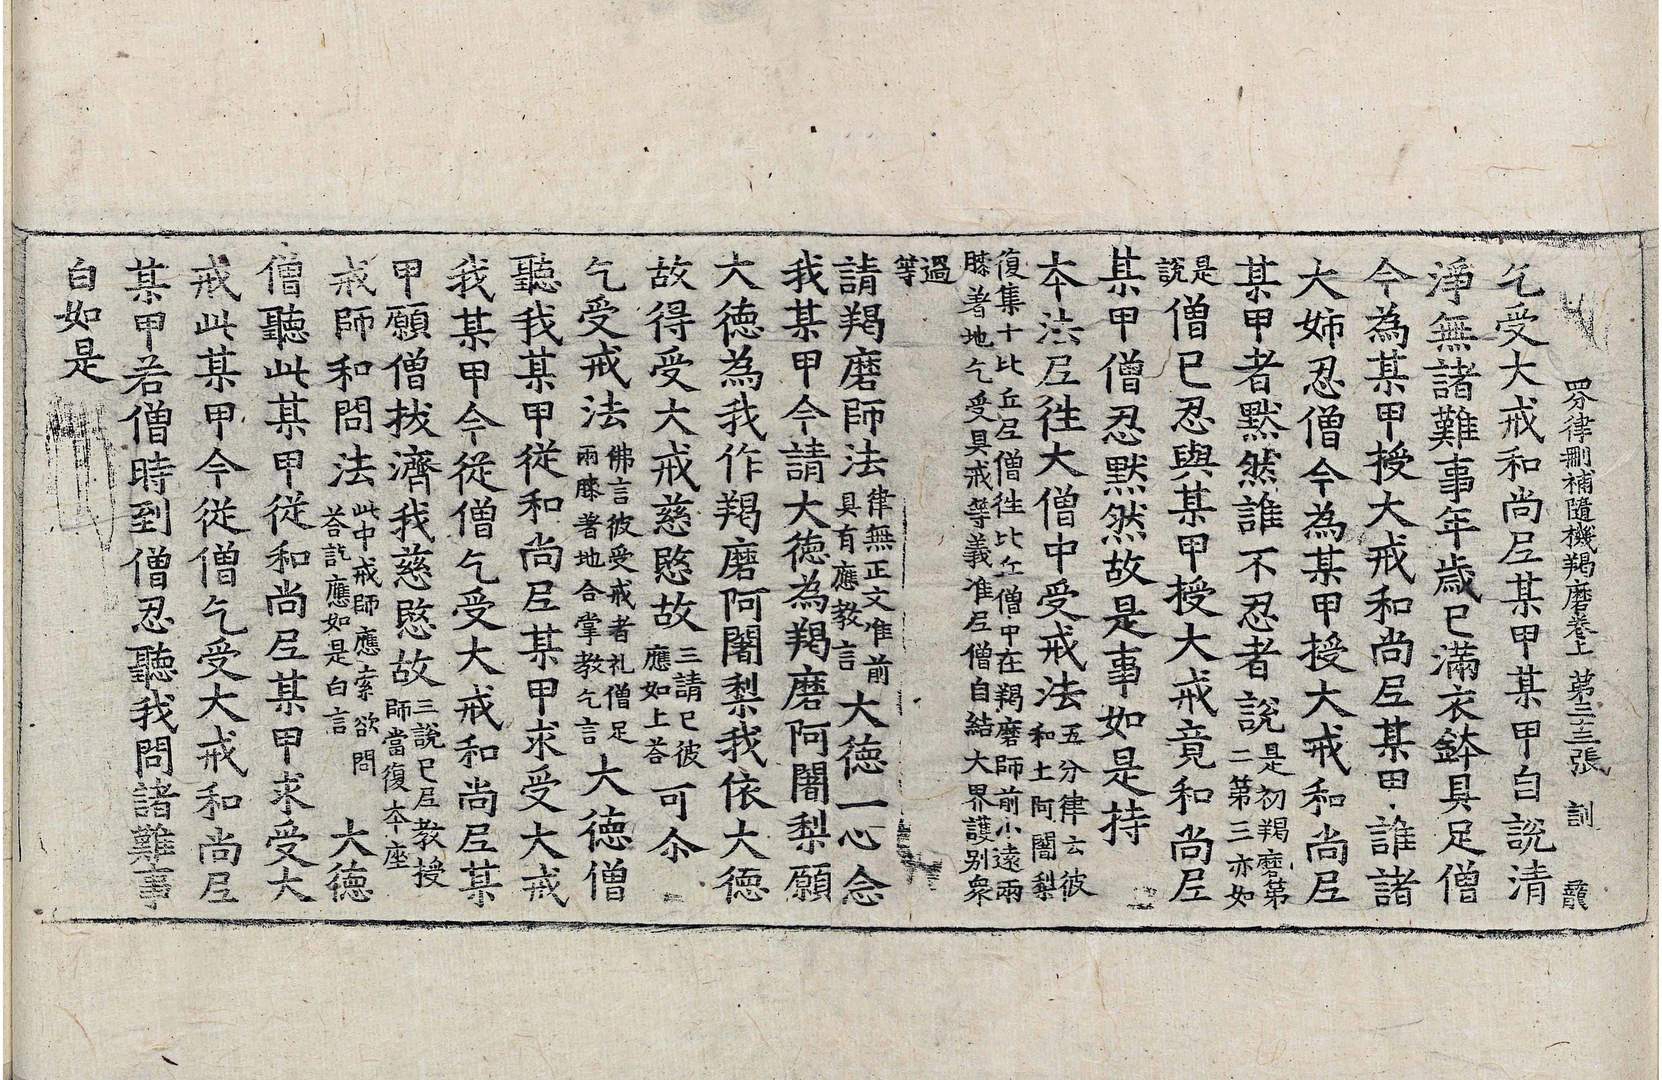 四分律刪補隨機羯磨卷上 第三十三張 訓
乞受大戒和尚尼某甲某甲自說清
淨無諸難事年歲已滿衣鉢具足僧
今為某甲授大戒和尚尼某甲誰諸
大姉忍僧今為某甲授大戒和尚尼
某甲者默然誰不忍者說是初羯磨第二第三亦如
是說僧已忍與某甲授大戒竟和尚尼
某甲僧忍默然故是事如是持
本法尼往大僧中受戒法五分律云彼和上阿闍梨
復集十比丘尼僧往比丘僧中在羯磨師前小遠兩
膝著地乞受具戒等義准尼僧自結大界護別衆
過等
請羯磨師法律無正文准前具有應教言大德一心念
我某甲今請大德為羯磨阿闍梨願
大德為我作羯磨阿闍梨我依大德
故得受大戒慈愍故三請已彼應如上荅可尒
乞受戒法佛言彼受戒者礼僧足兩膝著地合掌教乞言大德僧
聽我某甲従和尚尼某甲求受大戒
我某甲今従僧乞受大戒和尚尼某
甲願僧拔濟我慈愍故三說已尼教授師當復本座
戒師和問法此中戒師應索欲問荅訖應如是白言大德
僧聽此某甲従和尚尼某甲求受大
戒此某甲今従僧乞受大戒和尚尼
某甲若僧時到僧忍聽我問諸難事
白如是